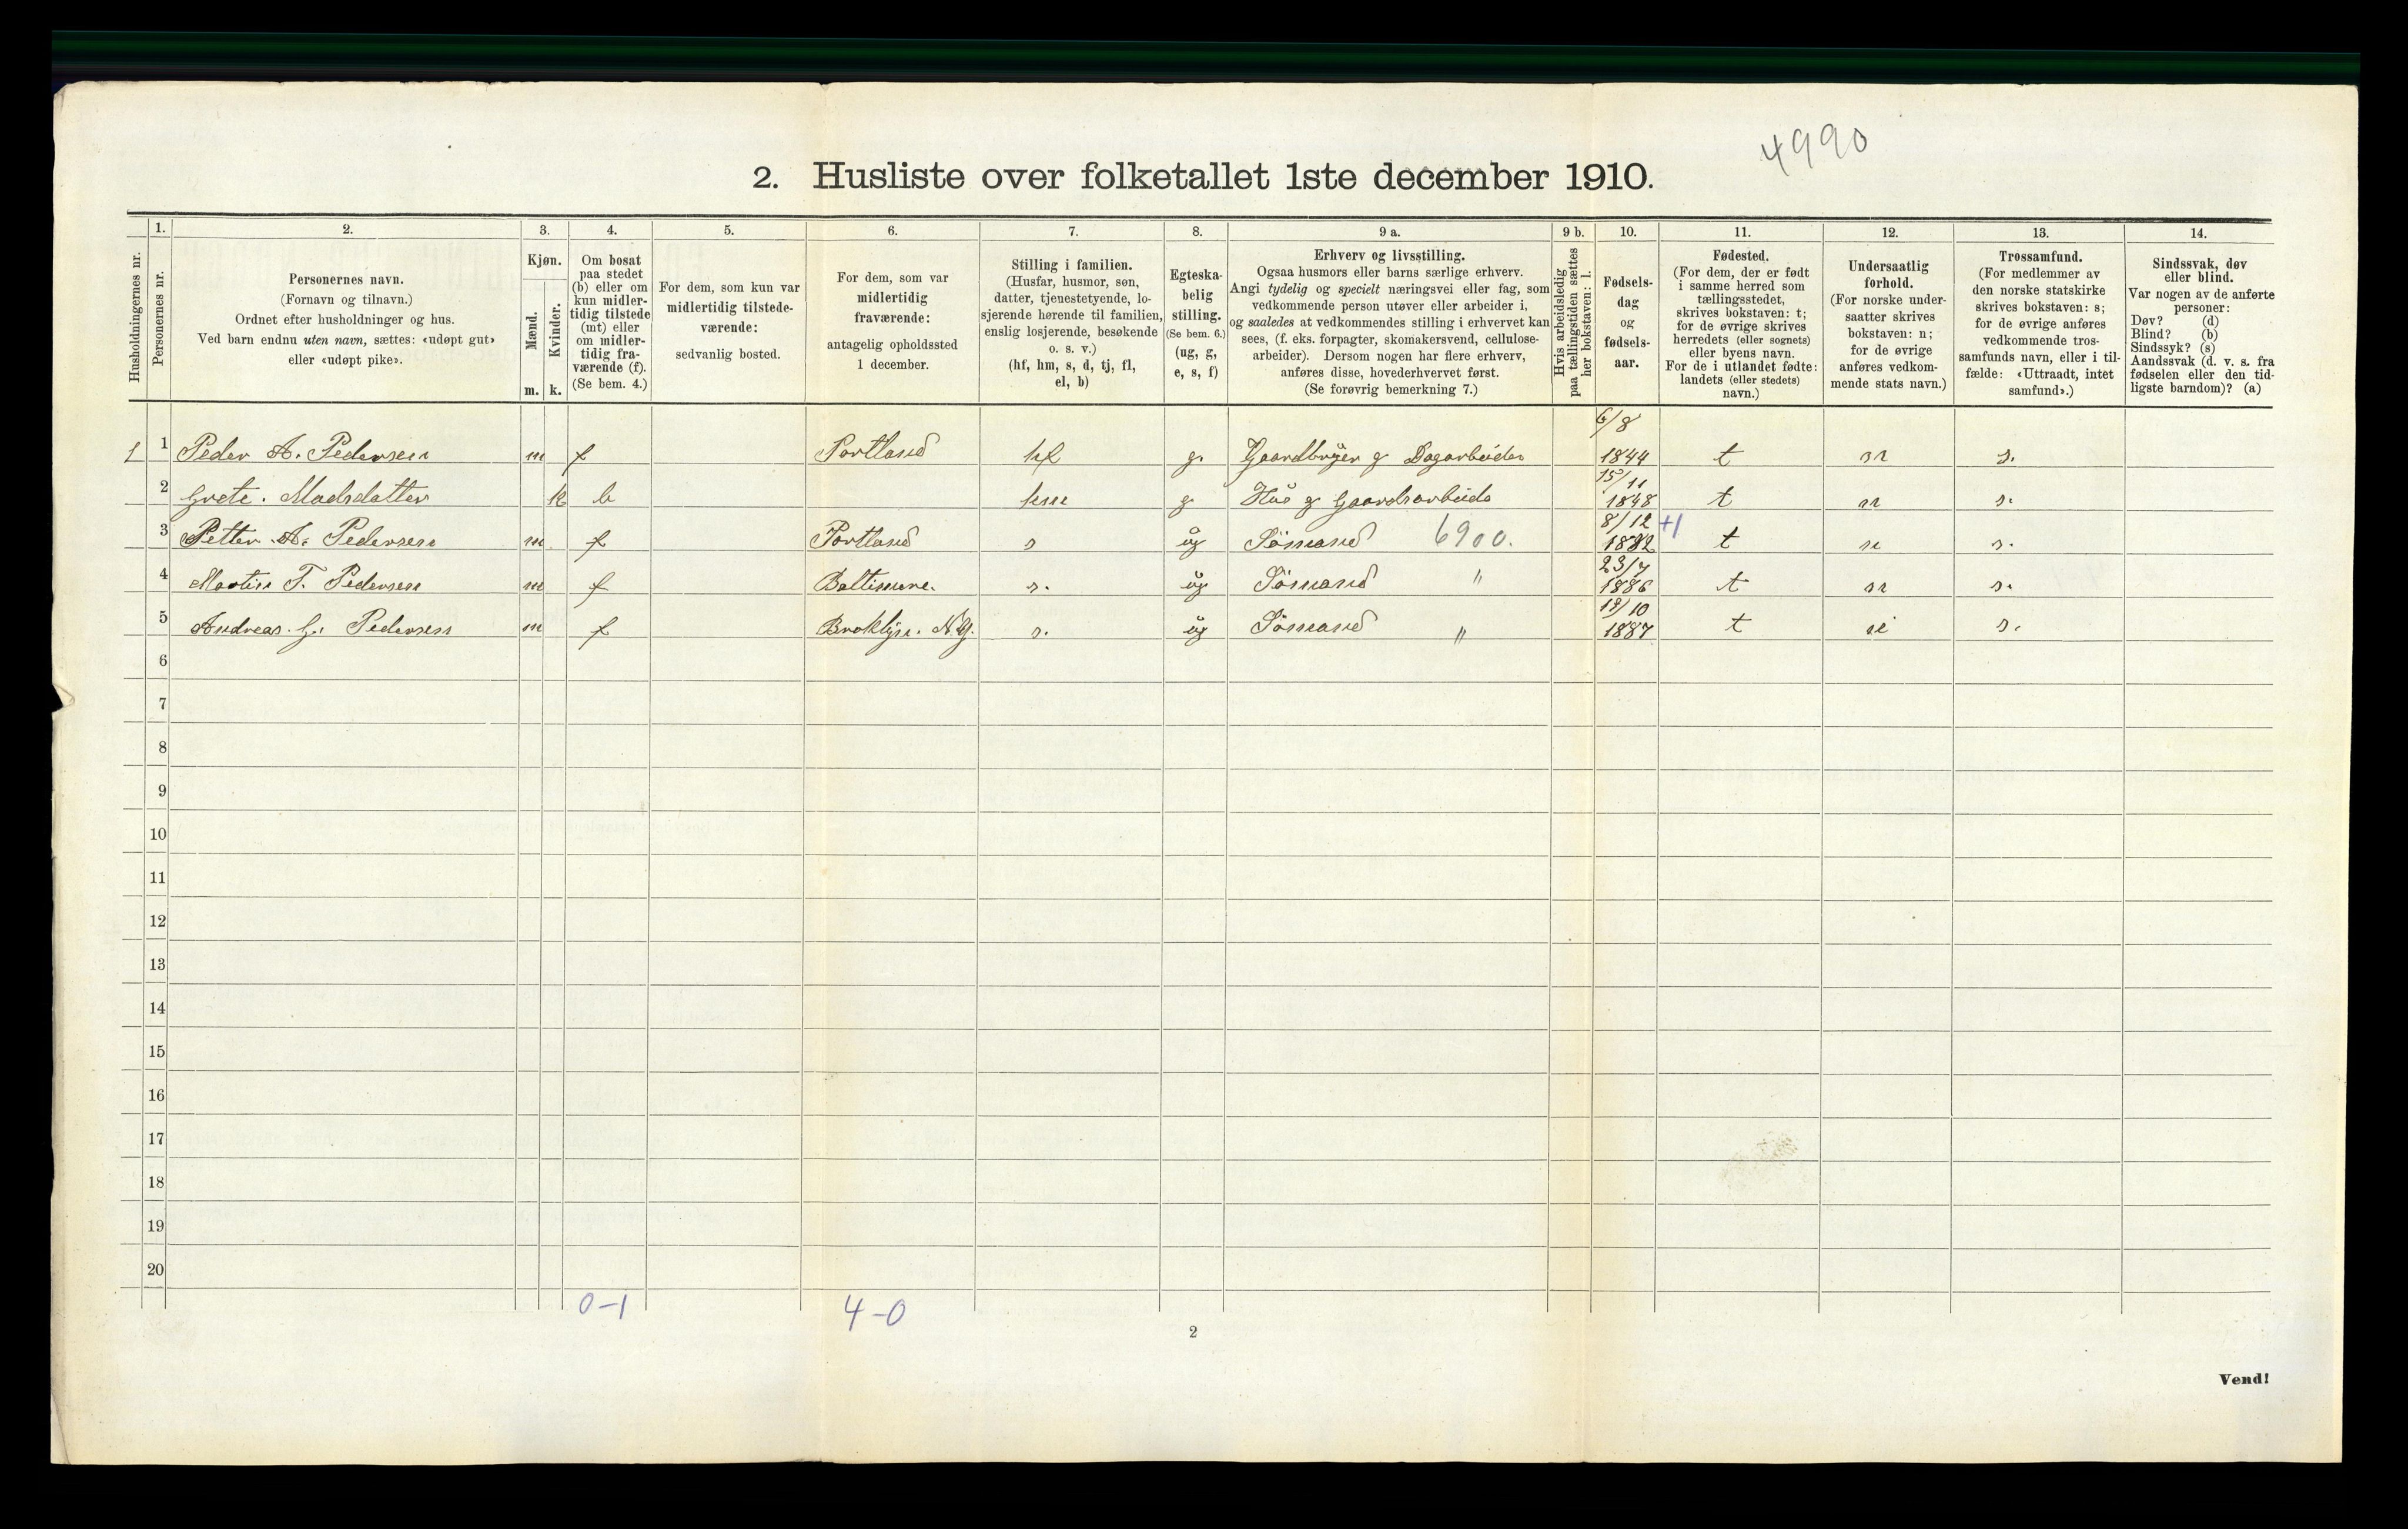 4990
2. Husliste over folketallet 1ste december 1910.
Husholdningernes nr.
1.
Personernes nr.
2.
Personernes navn.
(Fornavn og tilnavn.)
Ordnet efter husholdninger og hus.
Ved barn endnu uten navn, sættes: «udøpt gut»
eller «udøpt pike».
3.
Kjøn.
Mænd.
m.
Kvinder.
k.
4.
Om bosat
paa stedet
(b) eller om
kun midler-
tidig tilstede
(mt) eller
om midler-
tidig fra-
værende (f).
(Se bem. 4.)
5.
For dem, som kun var
midlertidig tilstede-
værende:
sedvanlig bosted.
6.
For dem, som var
midlertidig
fraværende:
antagelig opholdssted
1 december.
7.
Stilling i familien.
(Husfar, husmor, søn,
datter, tjenestetyende, lo-
sjerende hørende til familien,
enslig losjerende, besøkende
o. s. v.)
(hf, hm, s, d, tj, fl,
el, b)
8.
Egteska-
belig
stilling.
(Se bem. 6.)
(ug, g,
e, s, f)
9 a.
Erhverv og livsstilling.
Ogsaa husmors eller barns særlige erhverv.
Angi tydelig og specielt næringsvei eller fag, som
vedkommende person utøver eller arbeider i,
og saaledes at vedkommendes stilling i erhvervet kan
sees, (f. eks. forpagter, skomakersvend, cellulose-
arbeider). Dersom nogen har flere erhverv,
anføres disse, hovederhvervet først.
(Se forøvrig bemerkning 7.)
9 b.
Hvis arbeidsledig
paa tællingstiden sættes
her bokstaven: l.
10.
Fødsels-
dag
og
fødsels-
aar.
11.
Fødested.
(For dem, der er født
i samme herred som
tællingsstedet,
skrives bokstaven: t;
for de øvrige skrives
herredets (eller sognets)
eller byens navn.
For de i utlandet fødte:
landets (eller stedets)
navn.)
12.
Undersaatlig
forhold.
(For norske under-
saatter skrives
bokstaven: n;
for de øvrige
anføres vedkom-
mende stats navn.)
13.
Trossamfund.
(For medlemmer av
den norske statskirke
skrives bokstaven: s;
for de øvrige anføres
vedkommende tros-
samfunds navn, eller i til-
fælde: «Uttraadt, intet
samfund».)
14.
Sindssvak, døv
eller blind.
Var nogen av de anførte
personer:
Døv? (d)
Blind? (b)
Sindssyk? (s)
Aandssvak (d. v. s. fra
fødselen eller den tid-
ligste barndom)? (a)
1 1 Peder A. Pedersen m f Portland hf g. Gaardbryger g Dagarbeider 6/8 1844 t n s.
2 Grete. Madsdatter k b hm g Hus g Gaardsarbeide 15/11 1848 t n s.
3 Petter A. Pedersen m f Portland s ug Sömand 6900. 8/12 1882 +1 t n s.
4 Martin T. Pedersen m f Baltimore. s. ug Sömand " 23/7 1886 t n s.
5 Andreas. G. Pedersen m f Broklyn. N.Y. s. ug Sömand " 19/10 1887 t n s.
6
7
8
9
10
11
12
13
14
15
16
17
18
19
20
0-1 4-0
2
Vend!